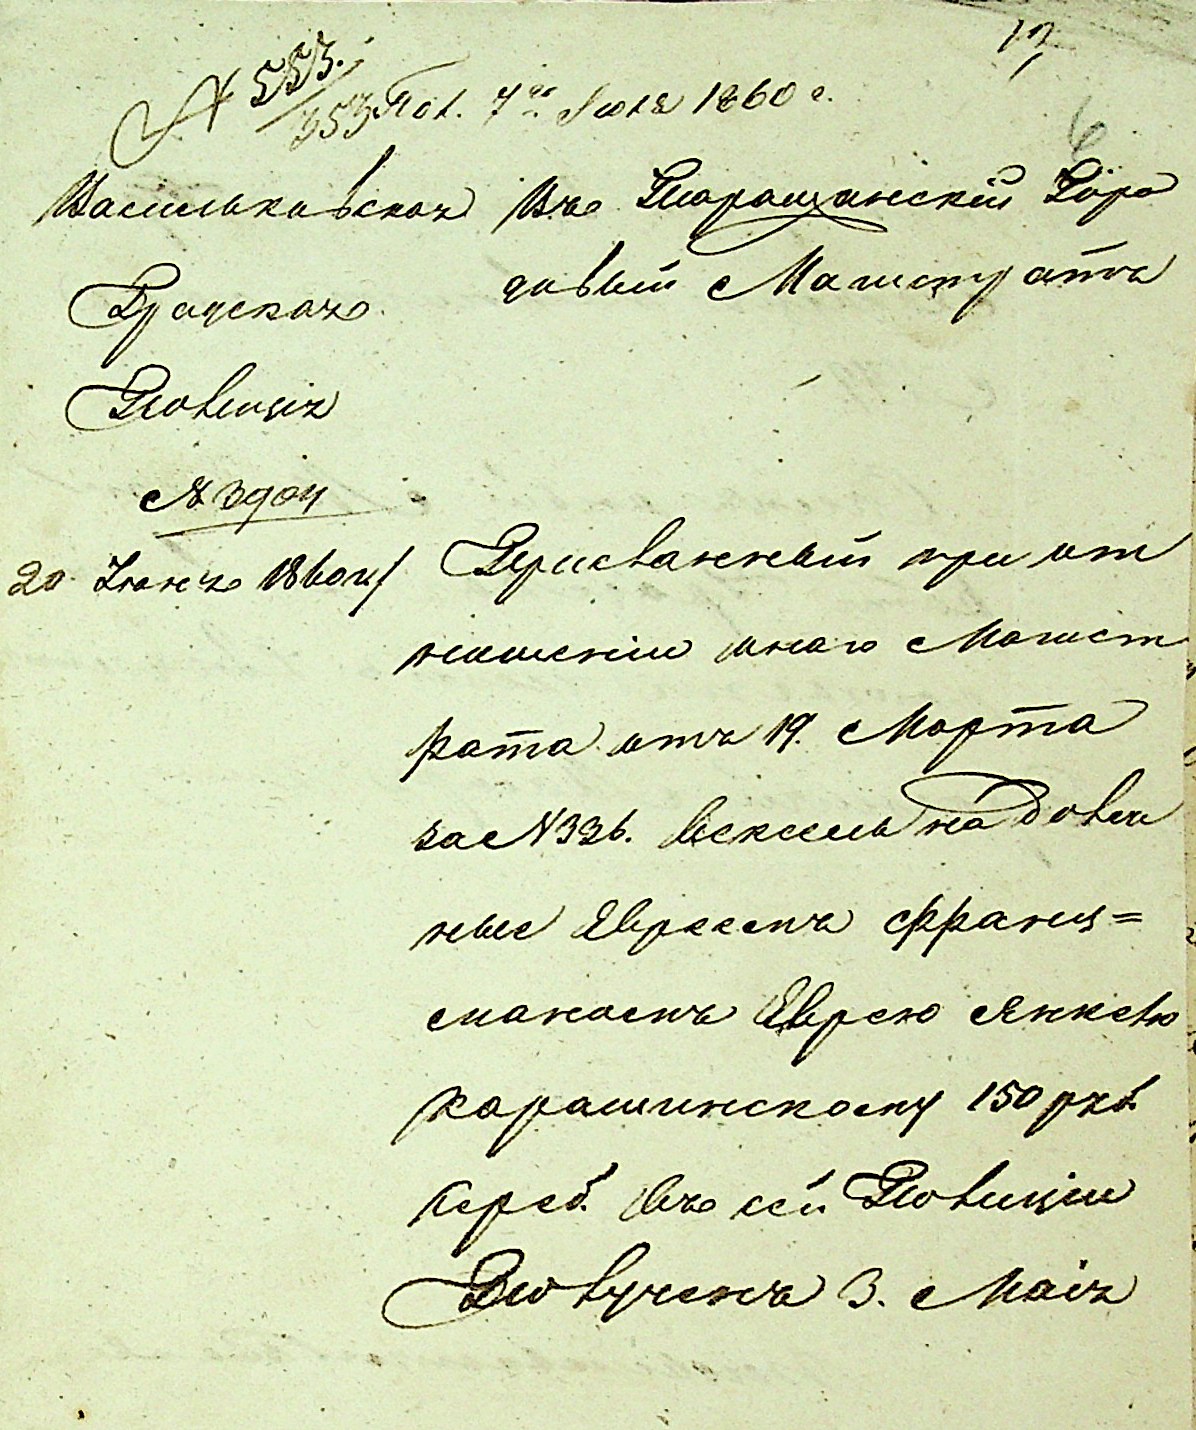 12
№ 553.
353 Пол. 7го Июля 1860 г.
6
Васильковская
Градская
Полиция
№ 3904
20 Іюня 1860 г/
Въ Таращанскій Горо
довый Магистратъ
Присланный при от
ношеніи онаго Магист
рата отъ 19. Марта
за № 326. вексель на долж
ные Евреемъ Франц=
маномъ Еврею Янкелю
Карашинскому 150 руб.
сереб. въ сей Полиціи
Полученъ 3. Маія